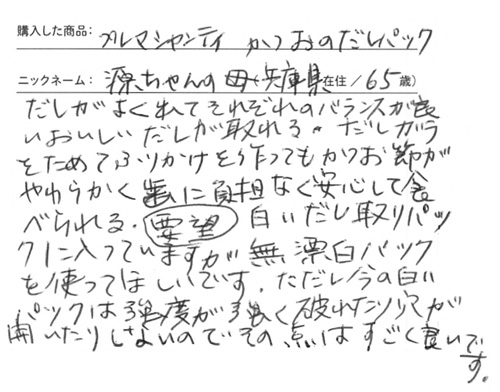 購入した商品: プレマシャンティ かつおのだしパック
ニックネーム: 源ちゃんの母・兵庫県在住/65歳)
だしがよくれてそれぞれのバランスが良
いおいしいだしが取れる。だしガラ
をためてふりかけを作ってもかつお節が
やわらかく歯に負担なく安心して食
べられる。要望 白いだし取りパッ
クに入っていますが無漂白パック
を使ってほしいです。ただし今の白い
パックは強度が強く破れたり穴が
開いたりしないのでその点はすごく良いで
す。